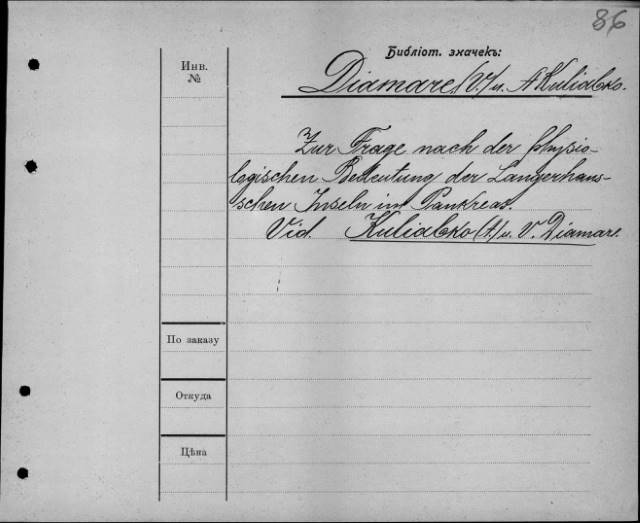 86
Библіот. значекъ:
Инв.
№
Diamare (V.) u. A Kuliabko.
Zur Frage nach der physio-
logischen Bedeutung der Langerhans-
schen Inseln im Pankreas.
Vid. Kuliabko (A.) u. V. Diamare.
По заказу
Откуда
Цѣна